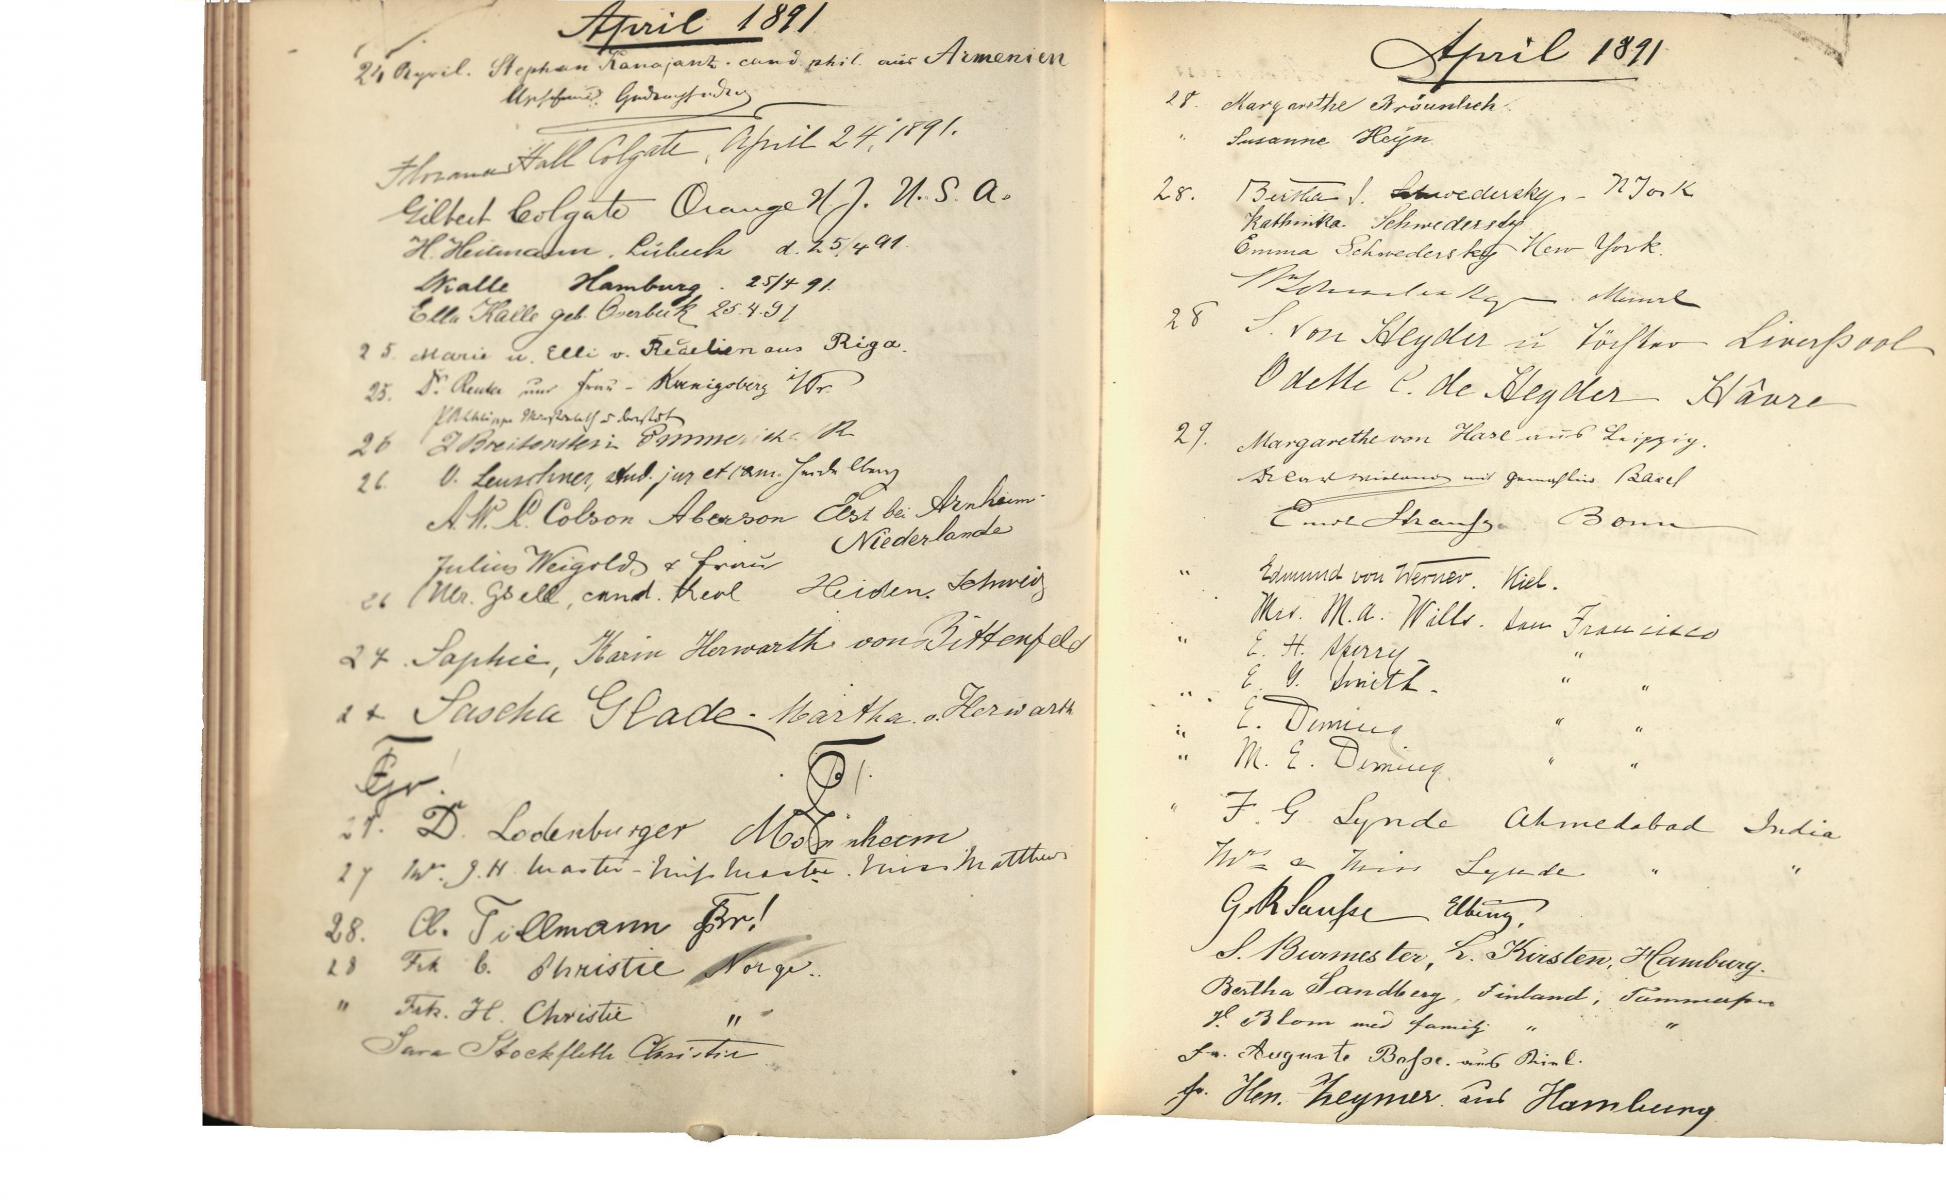 April 1891
24 April. Stephan Kanajanz. cand. phil. aus Armenien
Hall Colgate, April 24, 1891.
Gilbert Colgate Orange N.J. U.S.A.
H. Heitmann. Lübeck d. 25/4 91.
Kalle Hamburg. 25/4 91.
Ella Kalle geb. Overbeck 25.4.91
25. Marie u. Elli v. Redelien aus Riga.
25. Dr. und Frau - Kœnigsberg i/Pr.
26 J Breitenstein Emmerich a/R
26. O. Leuschner, stud. jur et cam. Heidelberg
A. W. K. Colson Aberson Elst bei Arnheim
Niederlande
Julius Weigold & Frau
26 Ulr. Gsell, cand. theol Heiden. Schweiz
27. Sophie, Karin Herwarth von Bittenfeld
27 Sascha Glade. Martha v. Herwarth
27. D. Lodenburger Mannheim
27 Mr. J. H. Master - Miss Master. Miss Matthews
28. Cl. Tillmann Br!
28 Frk C. Christie Norge.
" Frk. H. Christie "
Sara Stockfleth Christie
April 1891
28. Margarethe Bräunlich.
" Susanne Heÿn
28. Bertha S. Schwedersky. - N York
Kathinka Schwedersky
Emma Schwedersky New York.
28 S. von Heyder u Töchter Liverpool
Odette C. de Heyder Hâvre
29. Margarethe von Hase aus Leipzig.
Dr Carl Wieland mit Gemahlin Basel
Emil Strauss Bonn
" Edmund von Werner. Kiel.
Mrs. M. A. Wills. San Francisco
" E. H. Sperry "
" E. G. Smith. " "
" E. Deming " "
" M. E. Deming " "
" F. G Lynde Ahmedabad India
Mrs & Miss Lynde " "
G. R Sausse Elbing.
S. Burmester, L. Kirsten, Hamburg.
Bertha Sandberg, Finland, Tammerfors
V. Blom med familj " "
Fr. Auguste Basse. aus Kiel.
Fr. Hen. Zeymer aus Hamburg